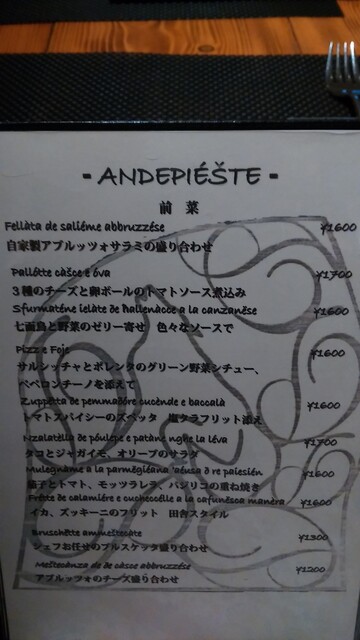 - ANDEPIÉŠTE -
前 菜
Fellàta de saliéme abbruzzése ¥1600
自家製アブルッツォサラミの盛り合わせ
Pallótte càšce e óva ¥1700
3種のチーズと卵ボールのトマトソース煮込み
Sfurmaténe ielàte de Ndllenàcce a la canzanése ¥1600
七面鳥と野菜のゼリー寄せ 色々なソースで
Pizz e Foje ¥1600
サルシッチャとポレンタのグリーン野菜シチュー、
ペペロンチーノを添えて
Zuppétta de pemmadóre cucènde e baccalà ¥1600
トマトスパイシーのズペッタ 塩タラフリット添え
Nzalatélla de póulepe e patàne nghe la léva ¥1700
タコとジャガイモ、オリーブのサラダ
Mulegnàme a la parmëgiéana 'aéusa d re palesién ¥1600
茄子とトマト、モッツラレラ、バジリコの重ね焼き
Fréite de calamiére e cucheccélle a la cafunësca manéra ¥1600
イカ、ズッキーニのフリット 田舎スタイル
Brusshétte ammeštecate ¥1300
シェフお任せのブルスケッタ盛り合わせ
Meštecuànza de de càsce abbruzzése ¥1200
アブルッツォのチーズ盛り合わせ